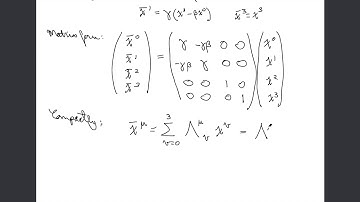 x̄¹ = γ(x¹ - βx⁰) x̄³ = x³
Matrix form: ( x̄⁰ x̄¹ x̄² x̄³ ) = ( γ -γβ 0 0 ; -γβ γ 0 0 ; 0 0 1 0 ; 0 0 0 1 ) ( x⁰ x¹ x² x³ )
Compactly: x̄^μ = Σ_{ν=0}^{3} Λ^μ_ν x^ν = Λ